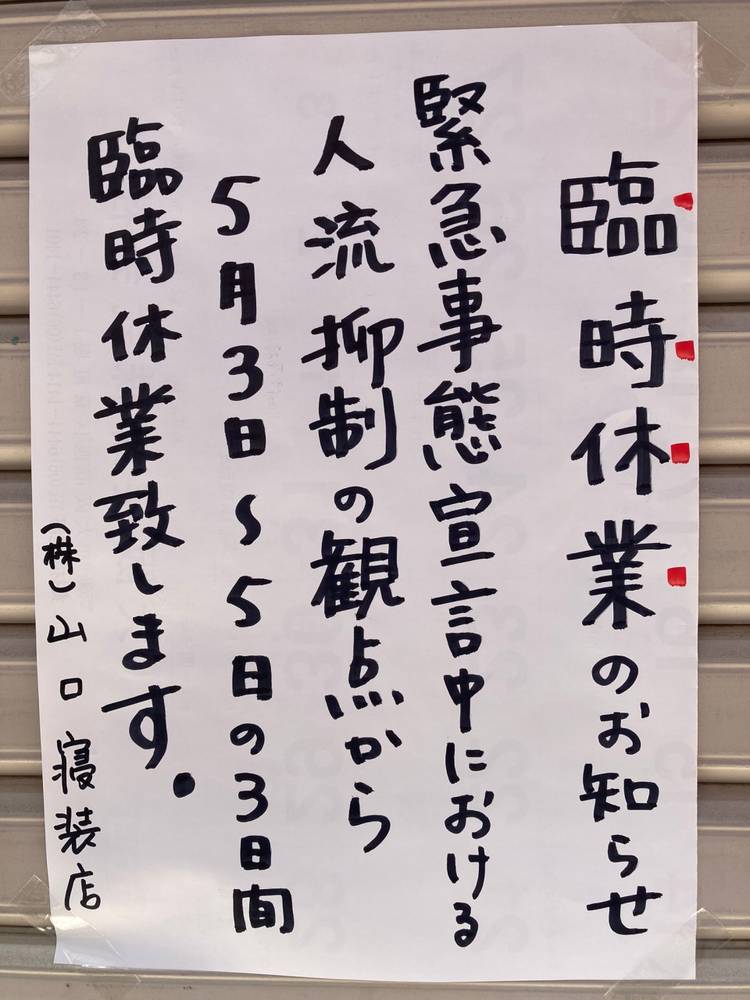 臨時休業のお知らせ
緊急事態宣言中における
人流抑制の観点から
5月3日〜5日の3日間
臨時休業致します.
(株)山口寝装店